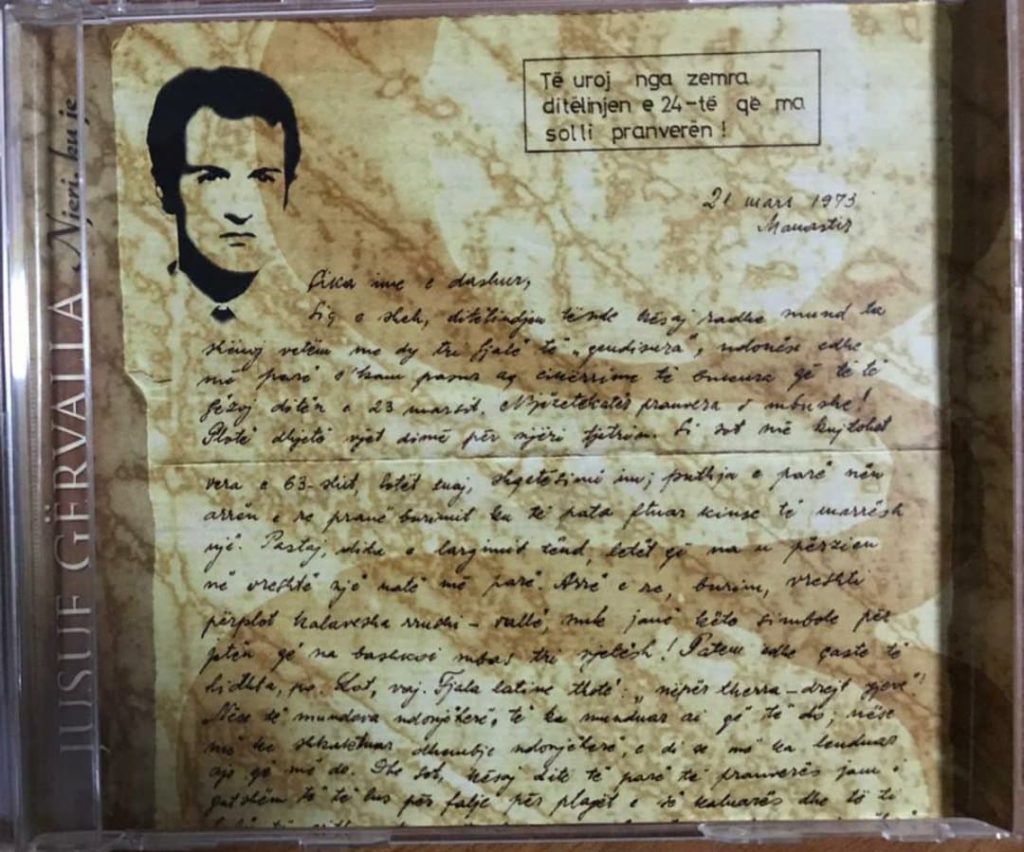 JUSUF GËRVALLA Njeri, ku je
Të uroj nga zemra
ditëlinjen e 24-të që ma
solli pranverën!
21 mars 1973
Manastir
Çika ime e dashur,
Siç e sheh, ditëlindjen tënde kësaj radhe mund ta
shënoj vetëm me dy tre fjalë të „qëndisura", ndonëse edhe
më parë s'kam pasur aq cikërrime të bukura që të të
gëzoj ditën e 23 marsit. Njëzetekatër pranvera i mbushe!
Plotë dhjetë vjet dimë për njëri tjetrin. Si sot më kujtohet
vera e 63-shit, lotët tuaj, shqetësimi im; puthja e parë nën
arrën e re pranë burimit ku të pata ftuar kinse të marrësh
ujë. Pastaj, dita e largimit tënd, lotët që na u përzien
në vreshtë një natë më parë. Arrë e re, burim, vreshti
përplot kalavesha rrushi – vallë, nuk janë këto simbole për
jetën që na bashkoi mbas tri vjetësh! Patëm edhe çaste të
hidhta, po. Lot, vaj. Fjala latine thotë: „nëpër therra – drejt yjeve"!
Nëse të mundova ndonjëherë, të ka munduar ai që të do; nëse
më ke shkaktuar dhembje ndonjëherë, e di se më ka lënduar
ajo që më do. Dhe sot, kësaj dite të parë të pranverës jam i
gatshëm të të lus për falje për plagët e së kaluarës dhe të të